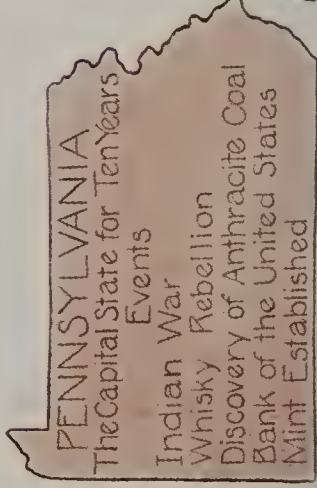 PENNSYLVANIA
The Capital State for Ten Years
Events
Indian War
Whisky Rebellion
Discovery of Anthracite Coal
Bank of the United States
Mint Established